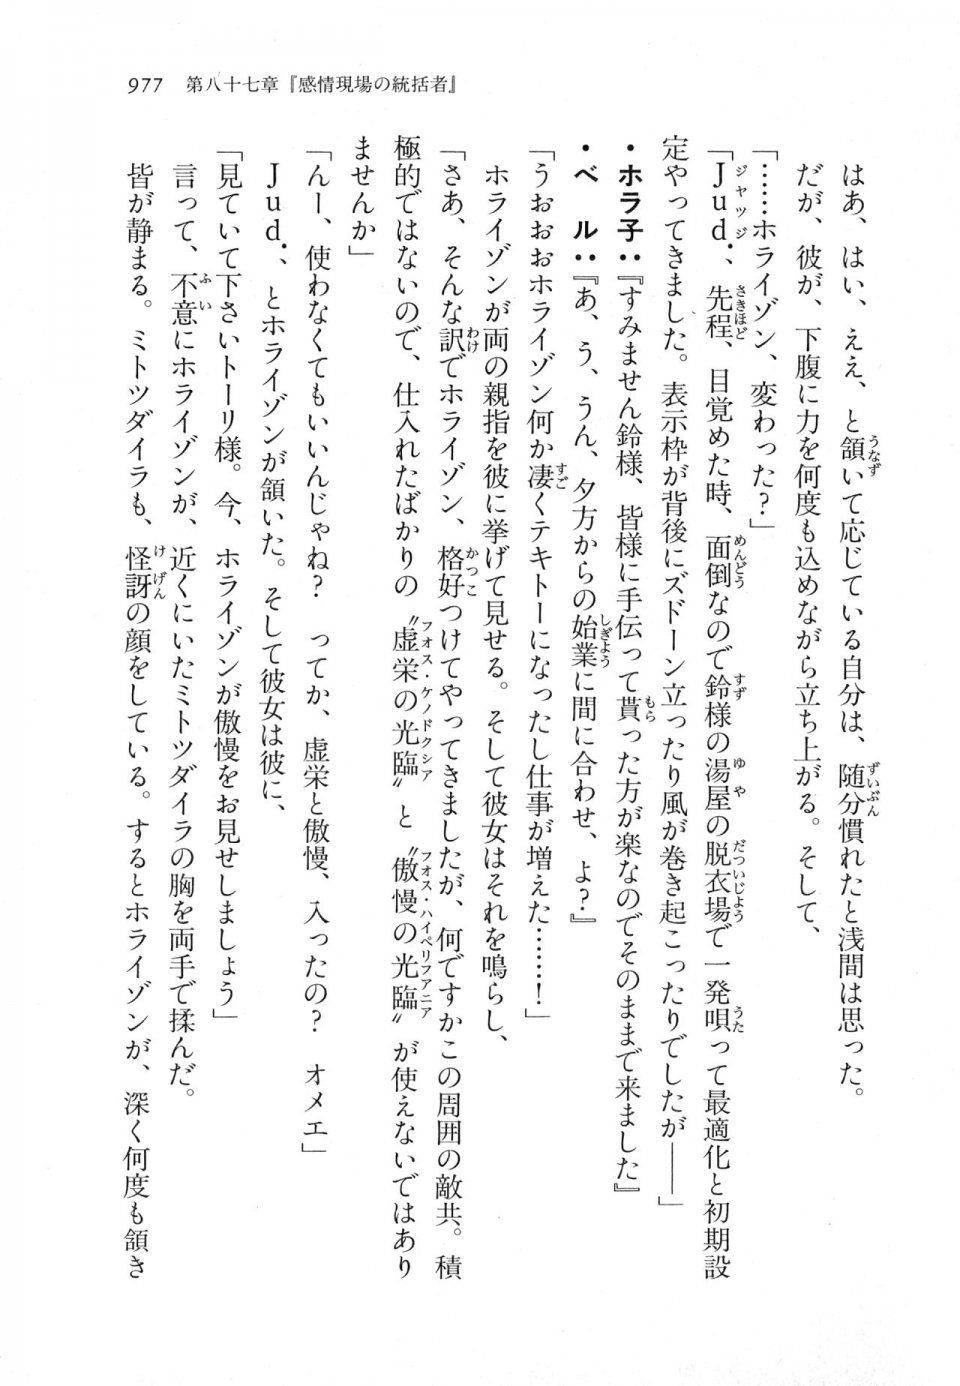 977　第八十七章『感情現場の統括者』
はあ、はい、ええ、と頷いて応じている自分は、随分慣れたと浅間は思った。
だが、彼が、下腹に力を何度も込めながら立ち上がる。そして、
「……ホライゾン、変わった?」
「Jud.、先程、目覚めた時、面倒なので鈴様の湯屋の脱衣場で一発唄って最適化と初期設
定やってきました。表示枠が背後にズドーン立ったり風が巻き起こったりでしたが――」
・ホラ子：『すみません鈴様、皆様に手伝って貰った方が楽なのでそのままで来ました』
・ベ　ル：『あ、う、うん、夕方からの始業に間に合わせ、よ?』
「うぉおおホライゾン何か凄くテキトーになったし仕事が増えた……!」
ホライゾンが両の親指を彼に挙げて見せる。そして彼女はそれを鳴らし、
「さあ、そんな訳でホライゾン、格好つけてやってきましたが、何ですかこの周囲の敵共。積
極的ではないので、仕入れたばかりの〝虚栄の光臨〟と〝傲慢の光臨〟が使えないではあり
ませんか」
「んー、使わなくてもいいんじゃね?　ってか、虚栄と傲慢、入ったの?　オメエ」
Jud.、とホライゾンが頷いた。そして彼女は彼に、
「見ていて下さいトーリ様。今、ホライゾンが傲慢をお見せしましょう」
言って、不意にホライゾンが、近くにいたミトツダイラの胸を両手で揉んだ。
皆が静まる。ミトツダイラも、怪訝の顔をしている。するとホライゾンが、深く何度も頷き